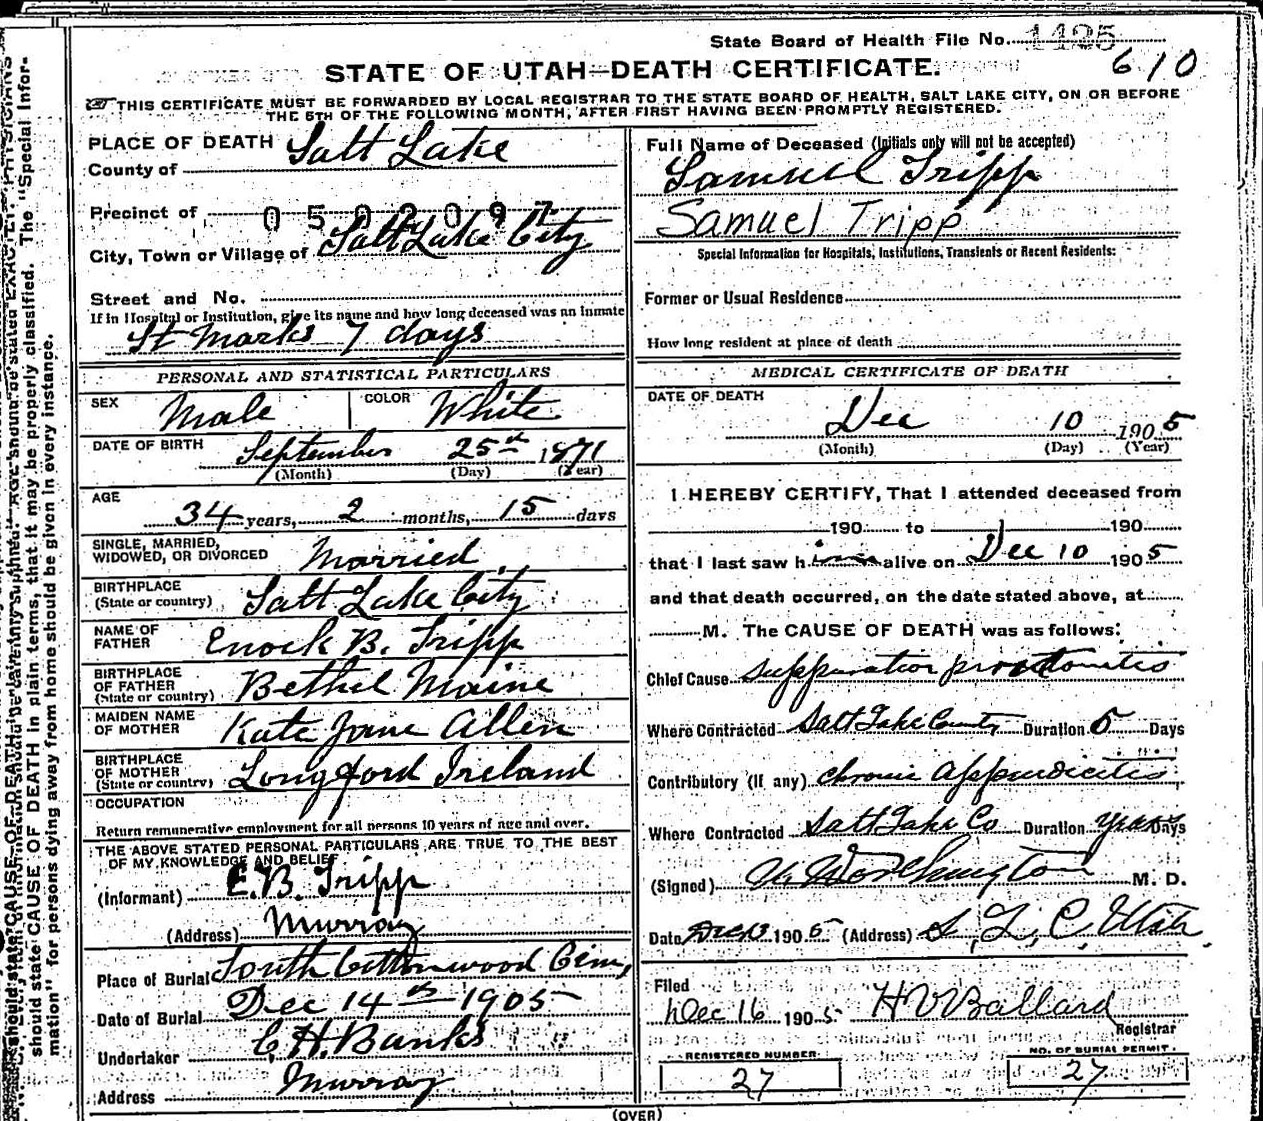 State Board of Health File No. 1425
610
STATE OF UTAH—DEATH CERTIFICATE.
THIS CERTIFICATE MUST BE FORWARDED BY LOCAL REGISTRAR TO THE STATE BOARD OF HEALTH, SALT LAKE CITY, ON OR BEFORE
THE 5TH OF THE FOLLOWING MONTH, AFTER FIRST HAVING BEEN PROMPTLY REGISTERED.
PLACE OF DEATH
County of Salt Lake
Precinct of 0502097
City, Town or Village of Salt Lake City
Street and No.
If in Hospital or Institution, give its name and how long deceased was an inmate
St Marks 7 days
PERSONAL AND STATISTICAL PARTICULARS
SEX Male COLOR White
DATE OF BIRTH September 25th 1871
(Month) (Day) (Year)
AGE
34 years, 2 months, 15 days
SINGLE, MARRIED,
WIDOWED, OR DIVORCED Married
BIRTHPLACE
(State or country) Salt Lake City
NAME OF
FATHER Enock B. Tripp
BIRTHPLACE
OF FATHER
(State or country) Bethel Maine
MAIDEN NAME
OF MOTHER Kate Jane Allen
BIRTHPLACE
OF MOTHER
(State or country) Longford Ireland
OCCUPATION
Return remunerative employment for all persons 10 years of age and over.
THE ABOVE STATED PERSONAL PARTICULARS ARE TRUE TO THE BEST
OF MY KNOWLEDGE AND BELIEF
(Informant) E.B. Tripp
(Address) Murray
Place of Burial South Cottonwood Cem,
Date of Burial Dec 14th 1905
Undertaker C. H. Banks
Address Murray
Full Name of Deceased (Initials only will not be accepted)
Samuel Tripp
Samuel Tripp
Special Information for Hospitals, Institutions, Transients or Recent Residents:
Former or Usual Residence
How long resident at place of death
MEDICAL CERTIFICATE OF DEATH
DATE OF DEATH
Dec 10 1905
(Month) (Day) (Year)
I HEREBY CERTIFY, That I attended deceased from
190 to 190
that I last saw him alive on Dec 10 1905
and that death occurred, on the date stated above, at
M. The CAUSE OF DEATH was as follows:
Chief Cause
Where Contracted Salt Lake County Duration 5 Days
Contributory (if any) chronic appendicitis
Where Contracted Salt Lake Co Duration years Days
(Signed) Worthington M. D.
Date 1905 (Address) S, L, C, Utah.
Filed
Dec 16 1905 H V Ballard
Registrar
REGISTERED NUMBER
27
NO. OF BURIAL PERMIT
27
(OVER)
should state CAUSE OF DEATH in plain terms, that it may be properly classified. The "Special Infor-
mation" for persons dying away from home should be given in every instance.